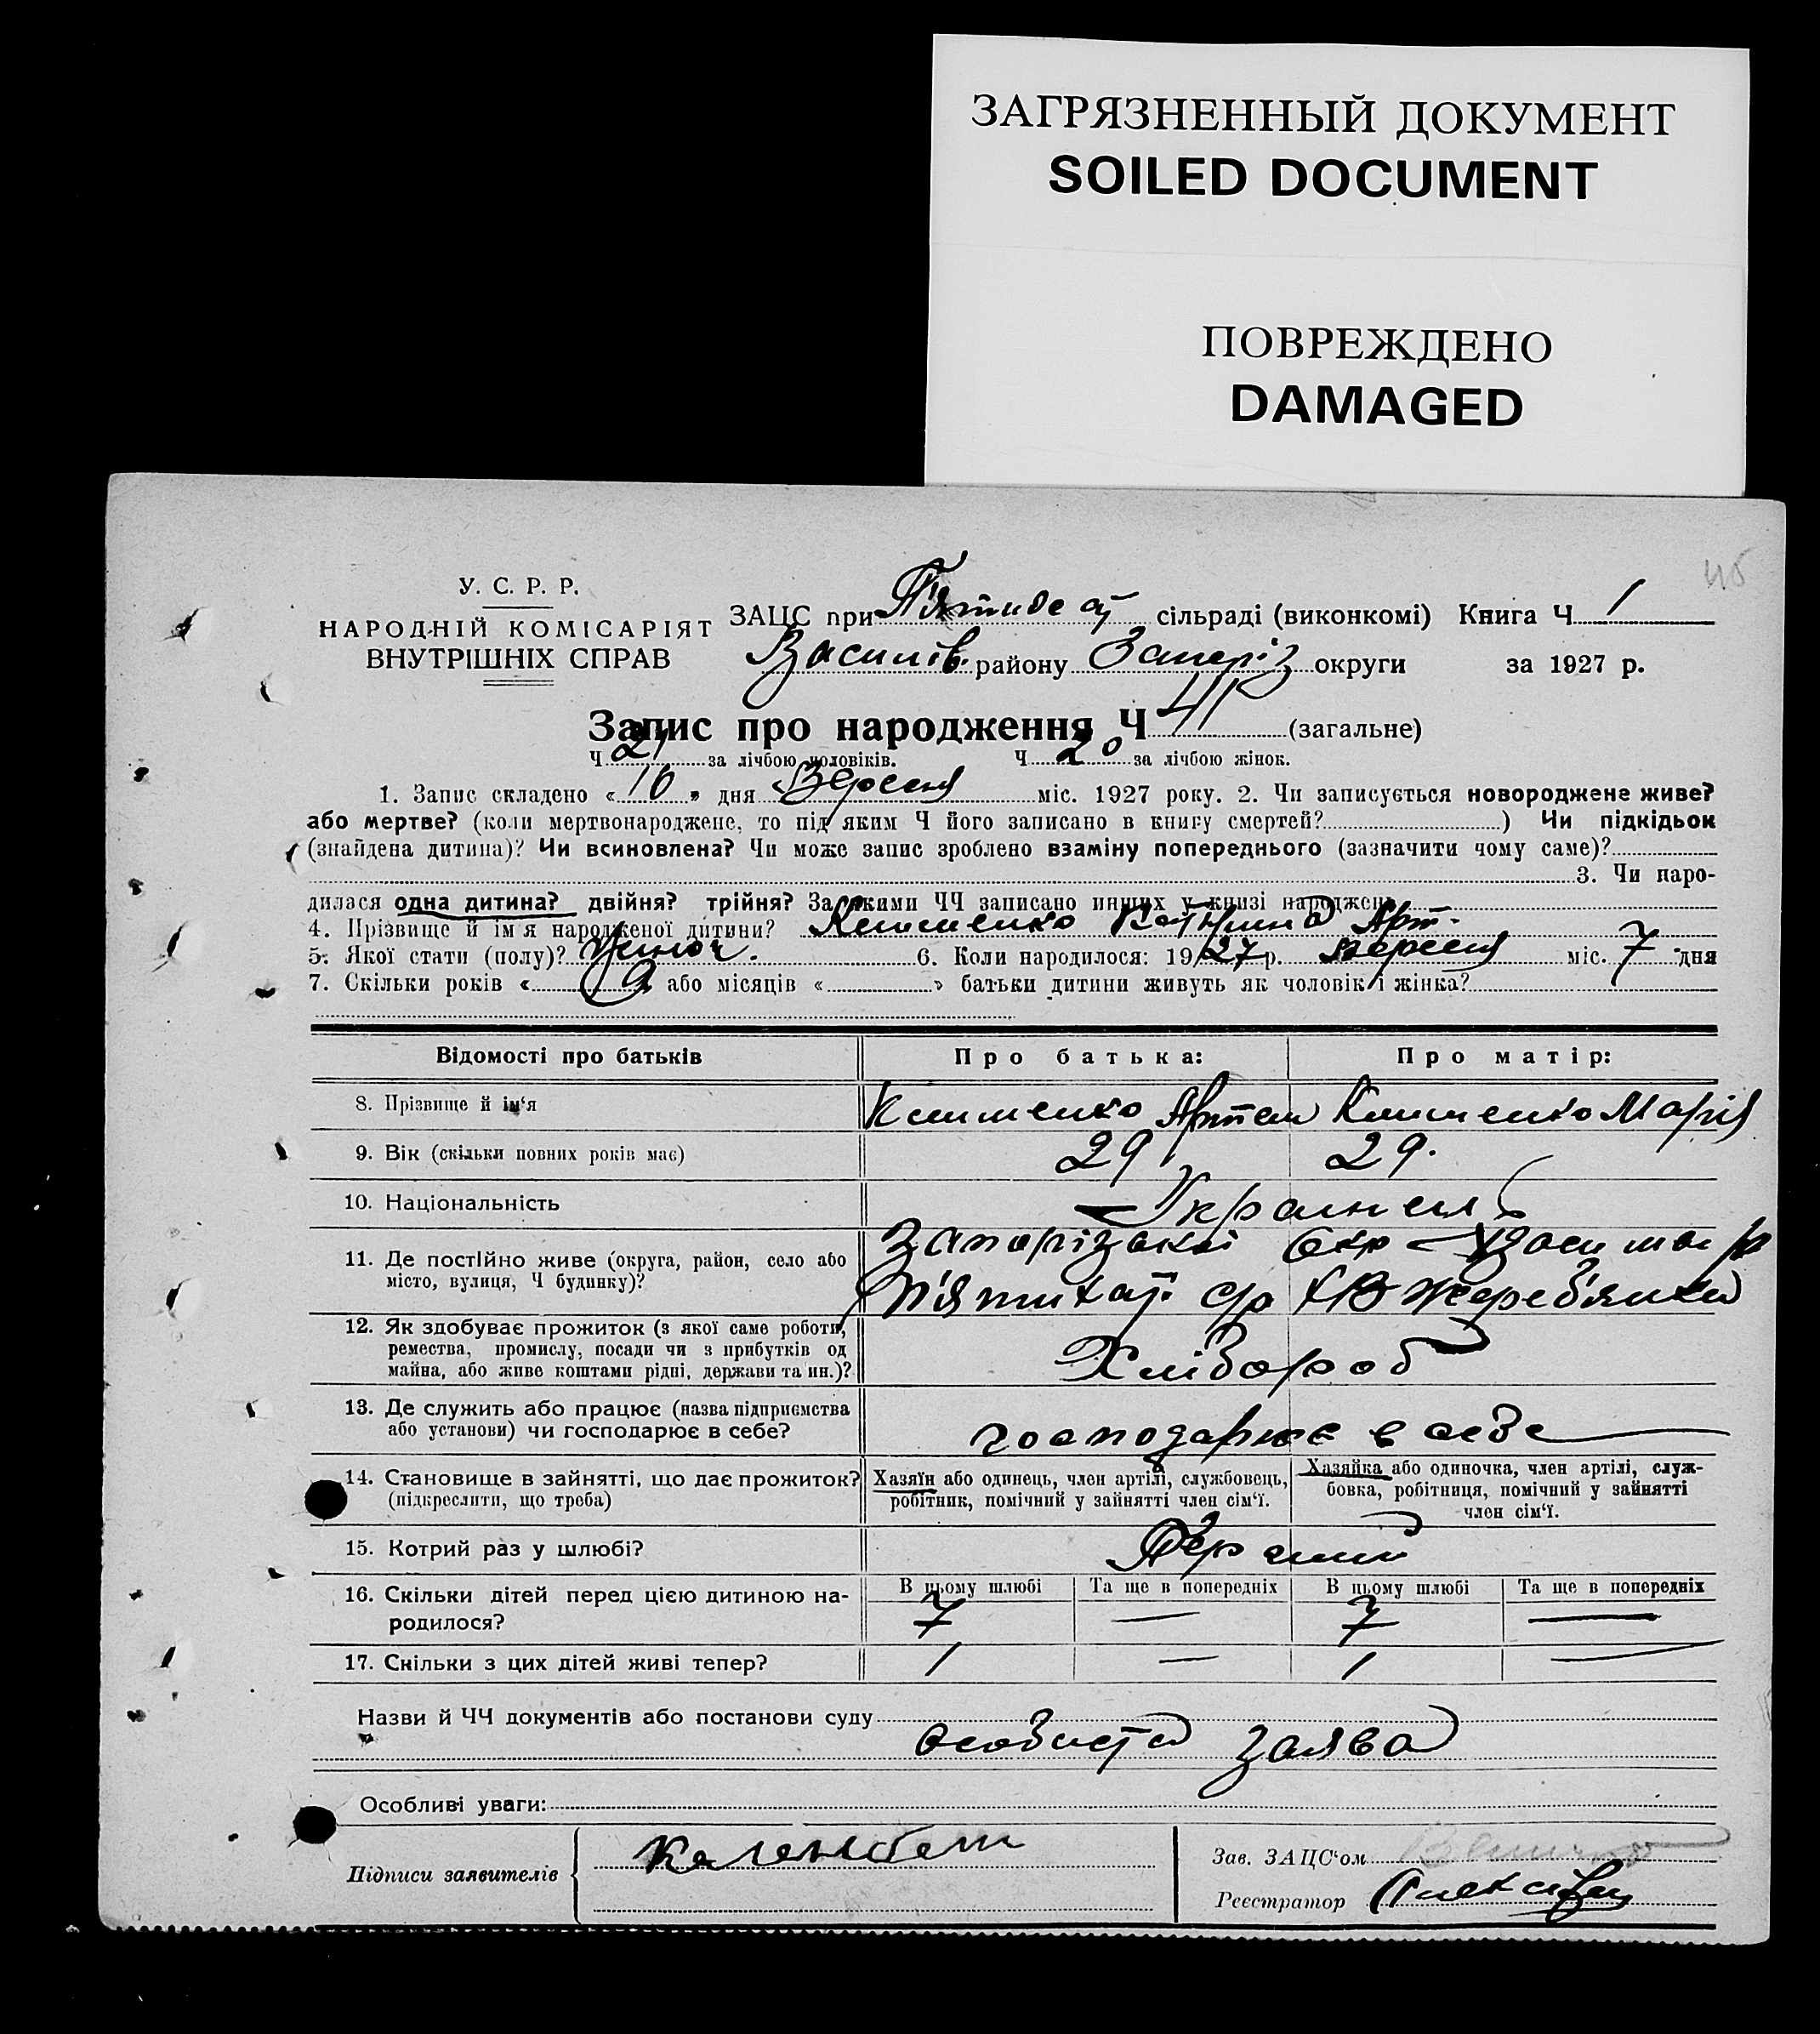 ЗАГРЯЗНЕННЫЙ ДОКУМЕНТ
SOILED DOCUMENT
ПОВРЕЖДЕНО
DAMAGED
У. С. Р. Р.
НАРОДНІЙ КОМІСАРІЯТ
ВНУТРІШНІХ СПРАВ
ЗАЦС при сільраді (виконкомі) Книга Ч 1
Василів. району Запоріз округи за 1927 р.
Запис про народження Ч 41 (загальне)
Ч 21 за лічбою чоловіків. Ч 20 за лічбою жінок.
1. Запис складено « 10 » дня Вересня міс. 1927 року. 2. Чи записується новороджене живе?
або мертве? (коли мертвонароджене, то під яким Ч його записано в книгу смертей? ) Чи підкідьок
(знайдена дитина)? Чи всиновлена? Чи може запис зроблено взаміну попереднього (зазначити чому саме)?
3. Чи наро-
дилася одна дитина? двійня? трійня? За якими ЧЧ записано инших у книзі народжень
4. Прізвище й ім'я народженої дитини? Клименко Катерина Арт.
5. Якої стати (полу)? Жіноч. 6. Коли народилося: 1927 р. вересня міс. 7 дня
7. Скільки років « 9 або місяців « » батьки дитини живуть як чоловік і жінка?
Відомості про батьків Про батька: Про матір:
8. Прізвище й ім'я Клименко Артем Клименко Марія
9. Вік (скільки повних років має) 29 29.
10. Національність
11. Де постійно живе (округа, район, село або Запорізької Окр
місто, вулиця, Ч будинку)? П'ятихат. с/р Жереб'янка
12. Як здобуває прожиток (з якої саме роботи,
ремества, промислу, посади чи з прибутків од
майна, або живе коштами рідні, держави та ин.)? Хлібороб
13. Де служить або працює (назва підприємства
або установи) чи господарює в себе? господарює в себе
14. Становище в зайнятті, що дає прожиток? Хазяїн або одинець, член артілі, службовець, Хазяйка або одиночка, член артілі, служ-
(підкреслити, що треба) робітник, помічний у зайнятті член сім'ї. бовка, робітниця, помічний у зайнятті
член сім'ї.
15. Котрий раз у шлюбі? Перший
16. Скільки дітей перед цією дитиною на- В цьому шлюбі Та ще в попередніх В цьому шлюбі Та ще в попередніх
родилося? 7 — 7 —
17. Скільки з цих дітей живі тепер? 1 — 1 —
Назви й ЧЧ документів або постанови суду
особиста заява
Особливі уваги:
Підписи заявителів
Зав. ЗАЦС'ом
Реєстратор